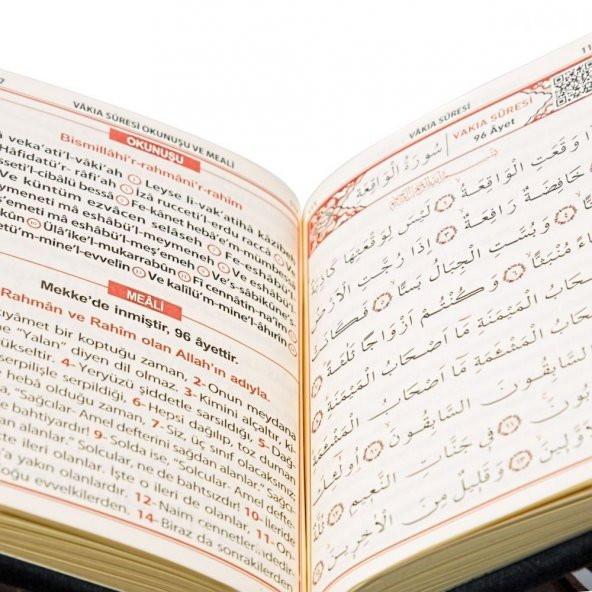 VÂKIA SÛRESİ OKUNUŞU VE MEALİ
OKUNUŞU
Bismillâhi'r-rahmâni'r-rahîm
veka'ati'l-vâkı'ah ① Leyse li-vak'atihâ kâzibeh
Hâfidatü'r-râfi'ah ③ İzâ ruccetil-erdu raccâ
sseti'l-cibâlü bessâ ⑤ Fe-kânet hebâ'e'm-mümbe
Ve küntüm ezvâcen selâseh
meymeneti mâ eshâbü'l-meymeneh Fe-eshâbü
eş'emeti mâ eshâbü'l-meş'emeh Ve's-sâbikûne's
Ülâike'l-mukarrabûn ⑪ Fî cennâtin-na'îm
etü'm-mine'l-evvelîn Ve kalîlü'm-mine'l-âhirîn
MEÂLİ
Mekke'de inmiştir. 96 âyettir.
Rahmân ve Rahîm olan Allah'ın adıyla.
kıyâmet bir koptuğu zaman, 2- Onun meydana
ne "Yalan" diyen dil olmaz. 3- Kimini alçaltır, ki-
yükseltir. 4- Yeryüzü şiddetle sarsıldığı, 5- Dağ-
serpilişle serpildiği, 6- Hepsi dağılıp, toz duman
heba olduğu zaman, 7- Siz, üç sınıf olacaksınız.
"Sağcılar- Amel defterini sağdan alanlar," sağcı-
bahtiyardır! 9- Solda ise, "Solcular, Amel defte-
an alanlar." Solcular, ne de bahtsızdır! 10- İleride
işte ileri olanlar. İşte o ileri de olanlar, 11- On-
'a yakın olanlardır. 12- Naim cennetlerindedir.
oğu evvelkilerden. 14- Biraz da sonrakilerden
VÂKIA SÛRESİ
11
VAKIA SÛRESİ
96 Âyet
سُورَةُ الْوَاقِعَةِ
وَقَعَتِ الْوَاقِعَةُ ١ لَيْسَ لِوَقْعَتِهَا كَاذِبَةٌ
خَافِضَةٌ رَافِعَةٌ ٣ إِذَا رُجَّتِ الْاَرْضُ
وَبُسَّتِ الْجِبَالُ بَسًّا ٥ فَكَانَتْ
مُنْبَثًّا ٦ وَكُنْتُمْ اَزْوَاجًا ثَلٰثَةً ٧
اَصْحَابُ الْمَيْمَنَةِ مَا اَصْحَابُ الْمَيْمَنَةِ ٨
اَصْحَابُ الْمَشْـَٔمَةِ مَا اَصْحَابُ الْمَشْـَٔمَةِ
السَّابِقُونَ السَّابِقُونَ ١٠ اُو۬لٰٓئِكَ
فِي جَنَّاتِ النَّعِيمِ ١٢ ثُلَّةٌ
وَقَلِيلٌ مِنَ الْاٰخِرِينَ